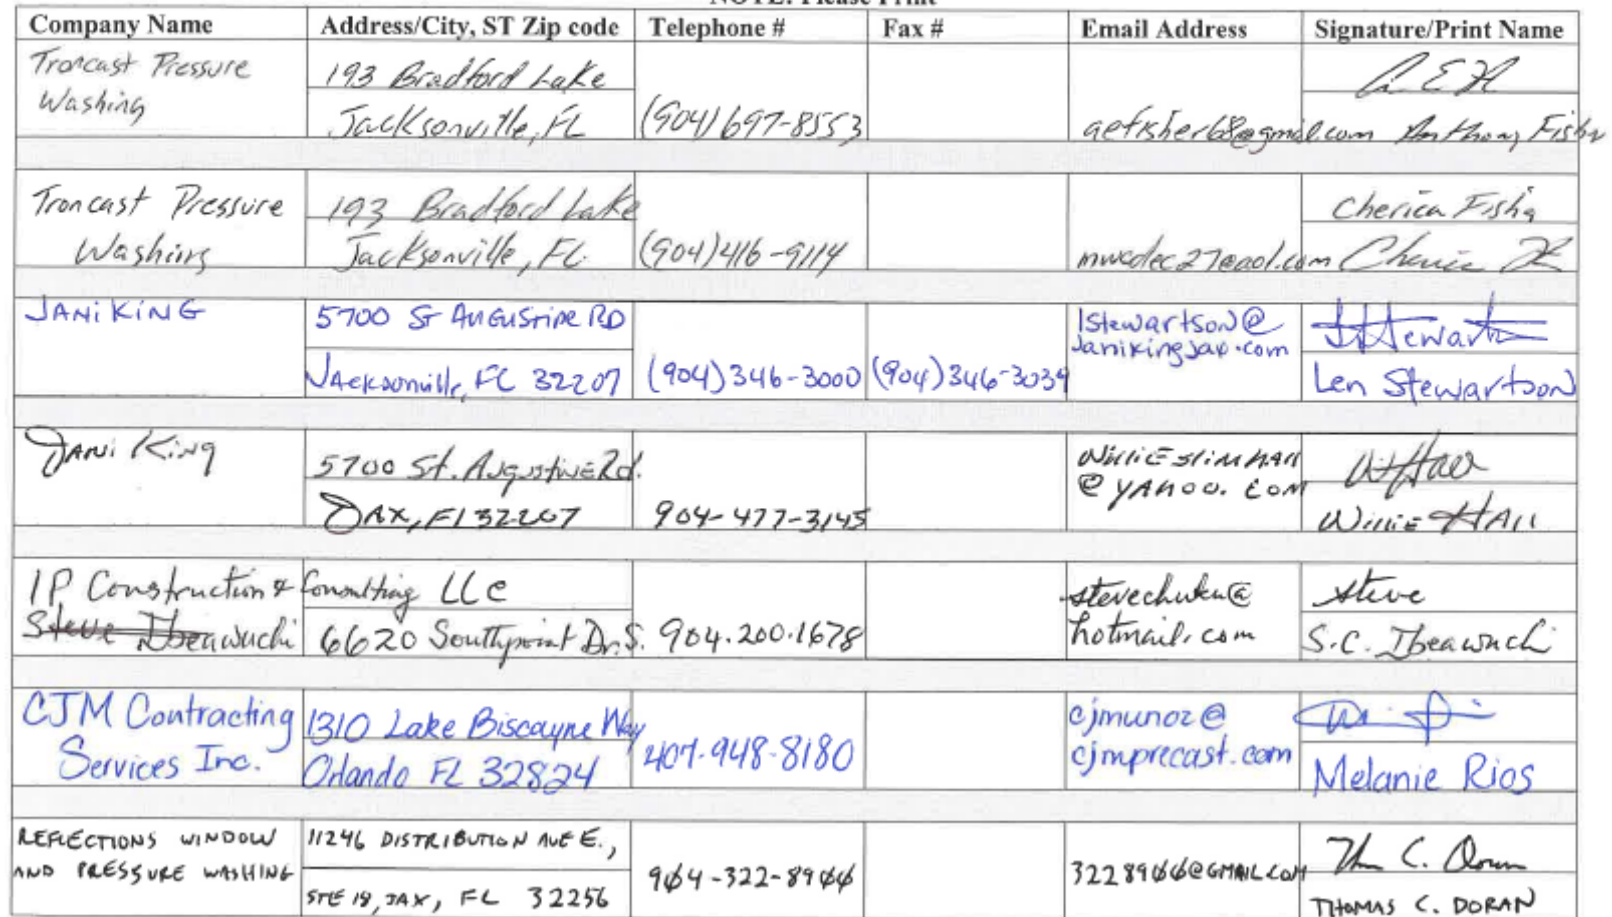 NOTE: Please Print
Company Name Address/City, ST Zip code Telephone # Fax # Email Address Signature/Print Name
Troncast Pressure
Washing
193 Bradford Lake
Jacksonville, FL
(904) 697-8553
aefisher68@gmail.com
Anthony Fisher
Troncast Pressure
Washing
193 Bradford Lake
Jacksonville, FL
(904) 416-9114
mwcdec27@aol.com
Cherica Fisher
JANI KING
5700 St Augustine RD
Jacksonville, FL 32207
(904) 346-3000
(904) 346-3039
lstewartson@
Janikingjax.com
Len Stewartson
Jani King
5700 St. Augustine Rd.
JAX, Fl 32207
904-477-3145
WillieslimHall
@YAHOO.COM
Willie HAll
IP Construction & Consulting LLC
Steve Ibeawuchi
6620 Southpoint Dr. S.
904.200.1678
stevechuku@
hotmail.com
Steve
S.C. Ibeawuchi
CJM Contracting
Services Inc.
1310 Lake Biscayne Way
Orlando FL 32824
407-948-8180
cjmunoz@
cjmprecast.com
Melanie Rios
REFLECTIONS WINDOW
AND PRESSURE WASHING
11246 DISTRIBUTION AVE E.,
STE 18, JAX, FL 32256
904-322-8900
3228900@GMAIL.COM
THOMAS C. DORAN